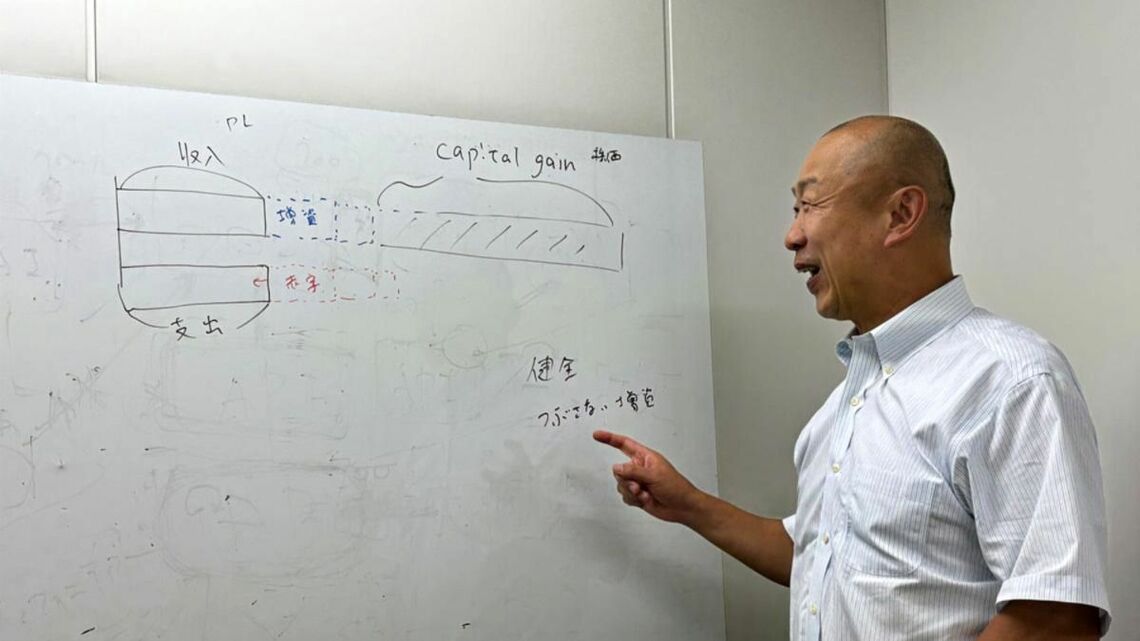 PL
収入
capital gain 株価
増資
赤字
支出
健全
つぶさない増資